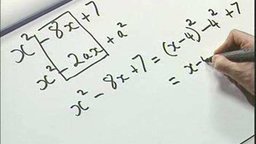 x² - 8x + 7
x² - 2ax + a²
x² - 8x + 7 = (x-4)² - 4² + 7
= x-